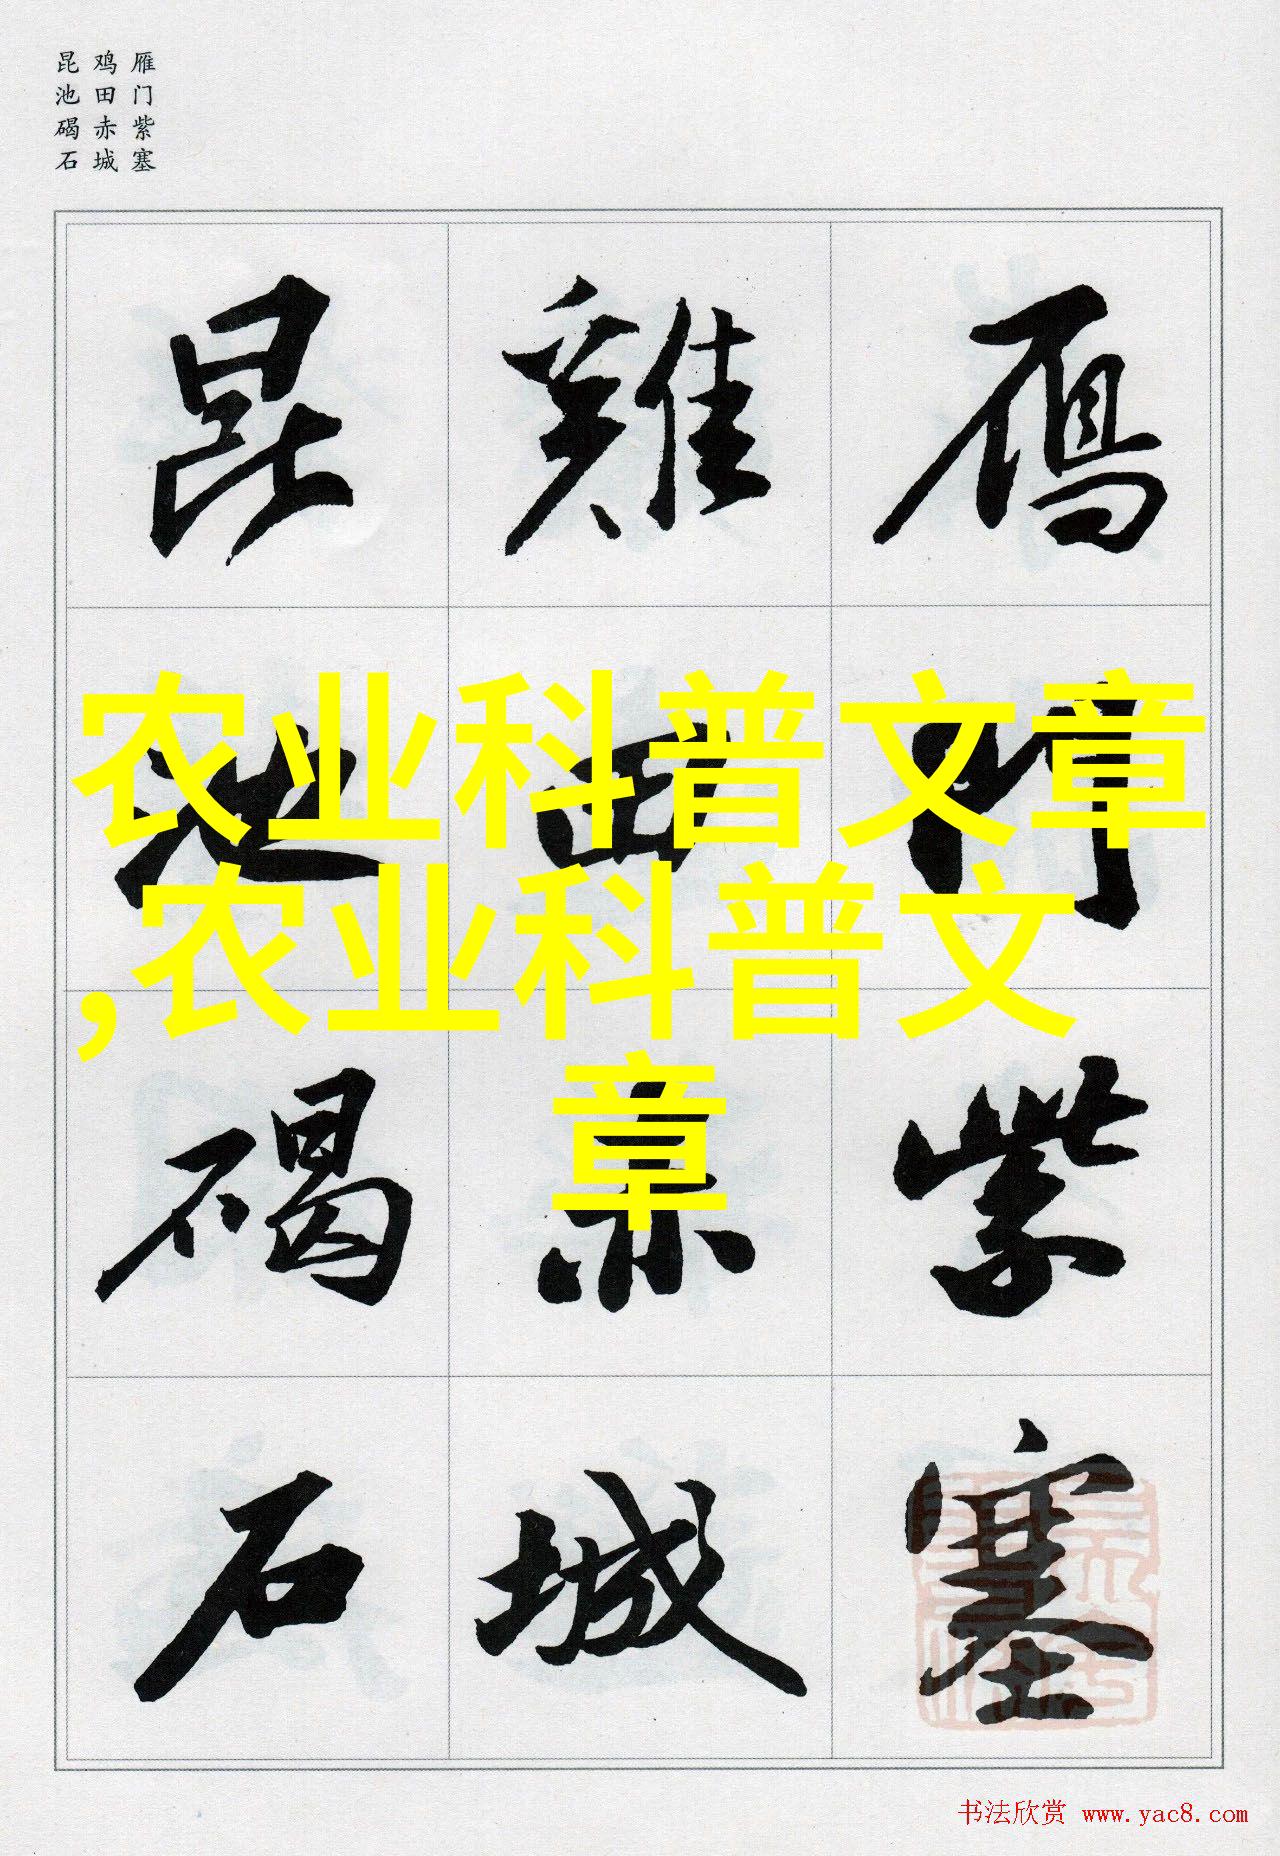 雁门紫塞
鸡田赤城
昆池碣石
鴈門紫塞
雞田赤城
昆池碣石
农业科普文章
,农业科普文
章
书法欣赏 www.yac8.com